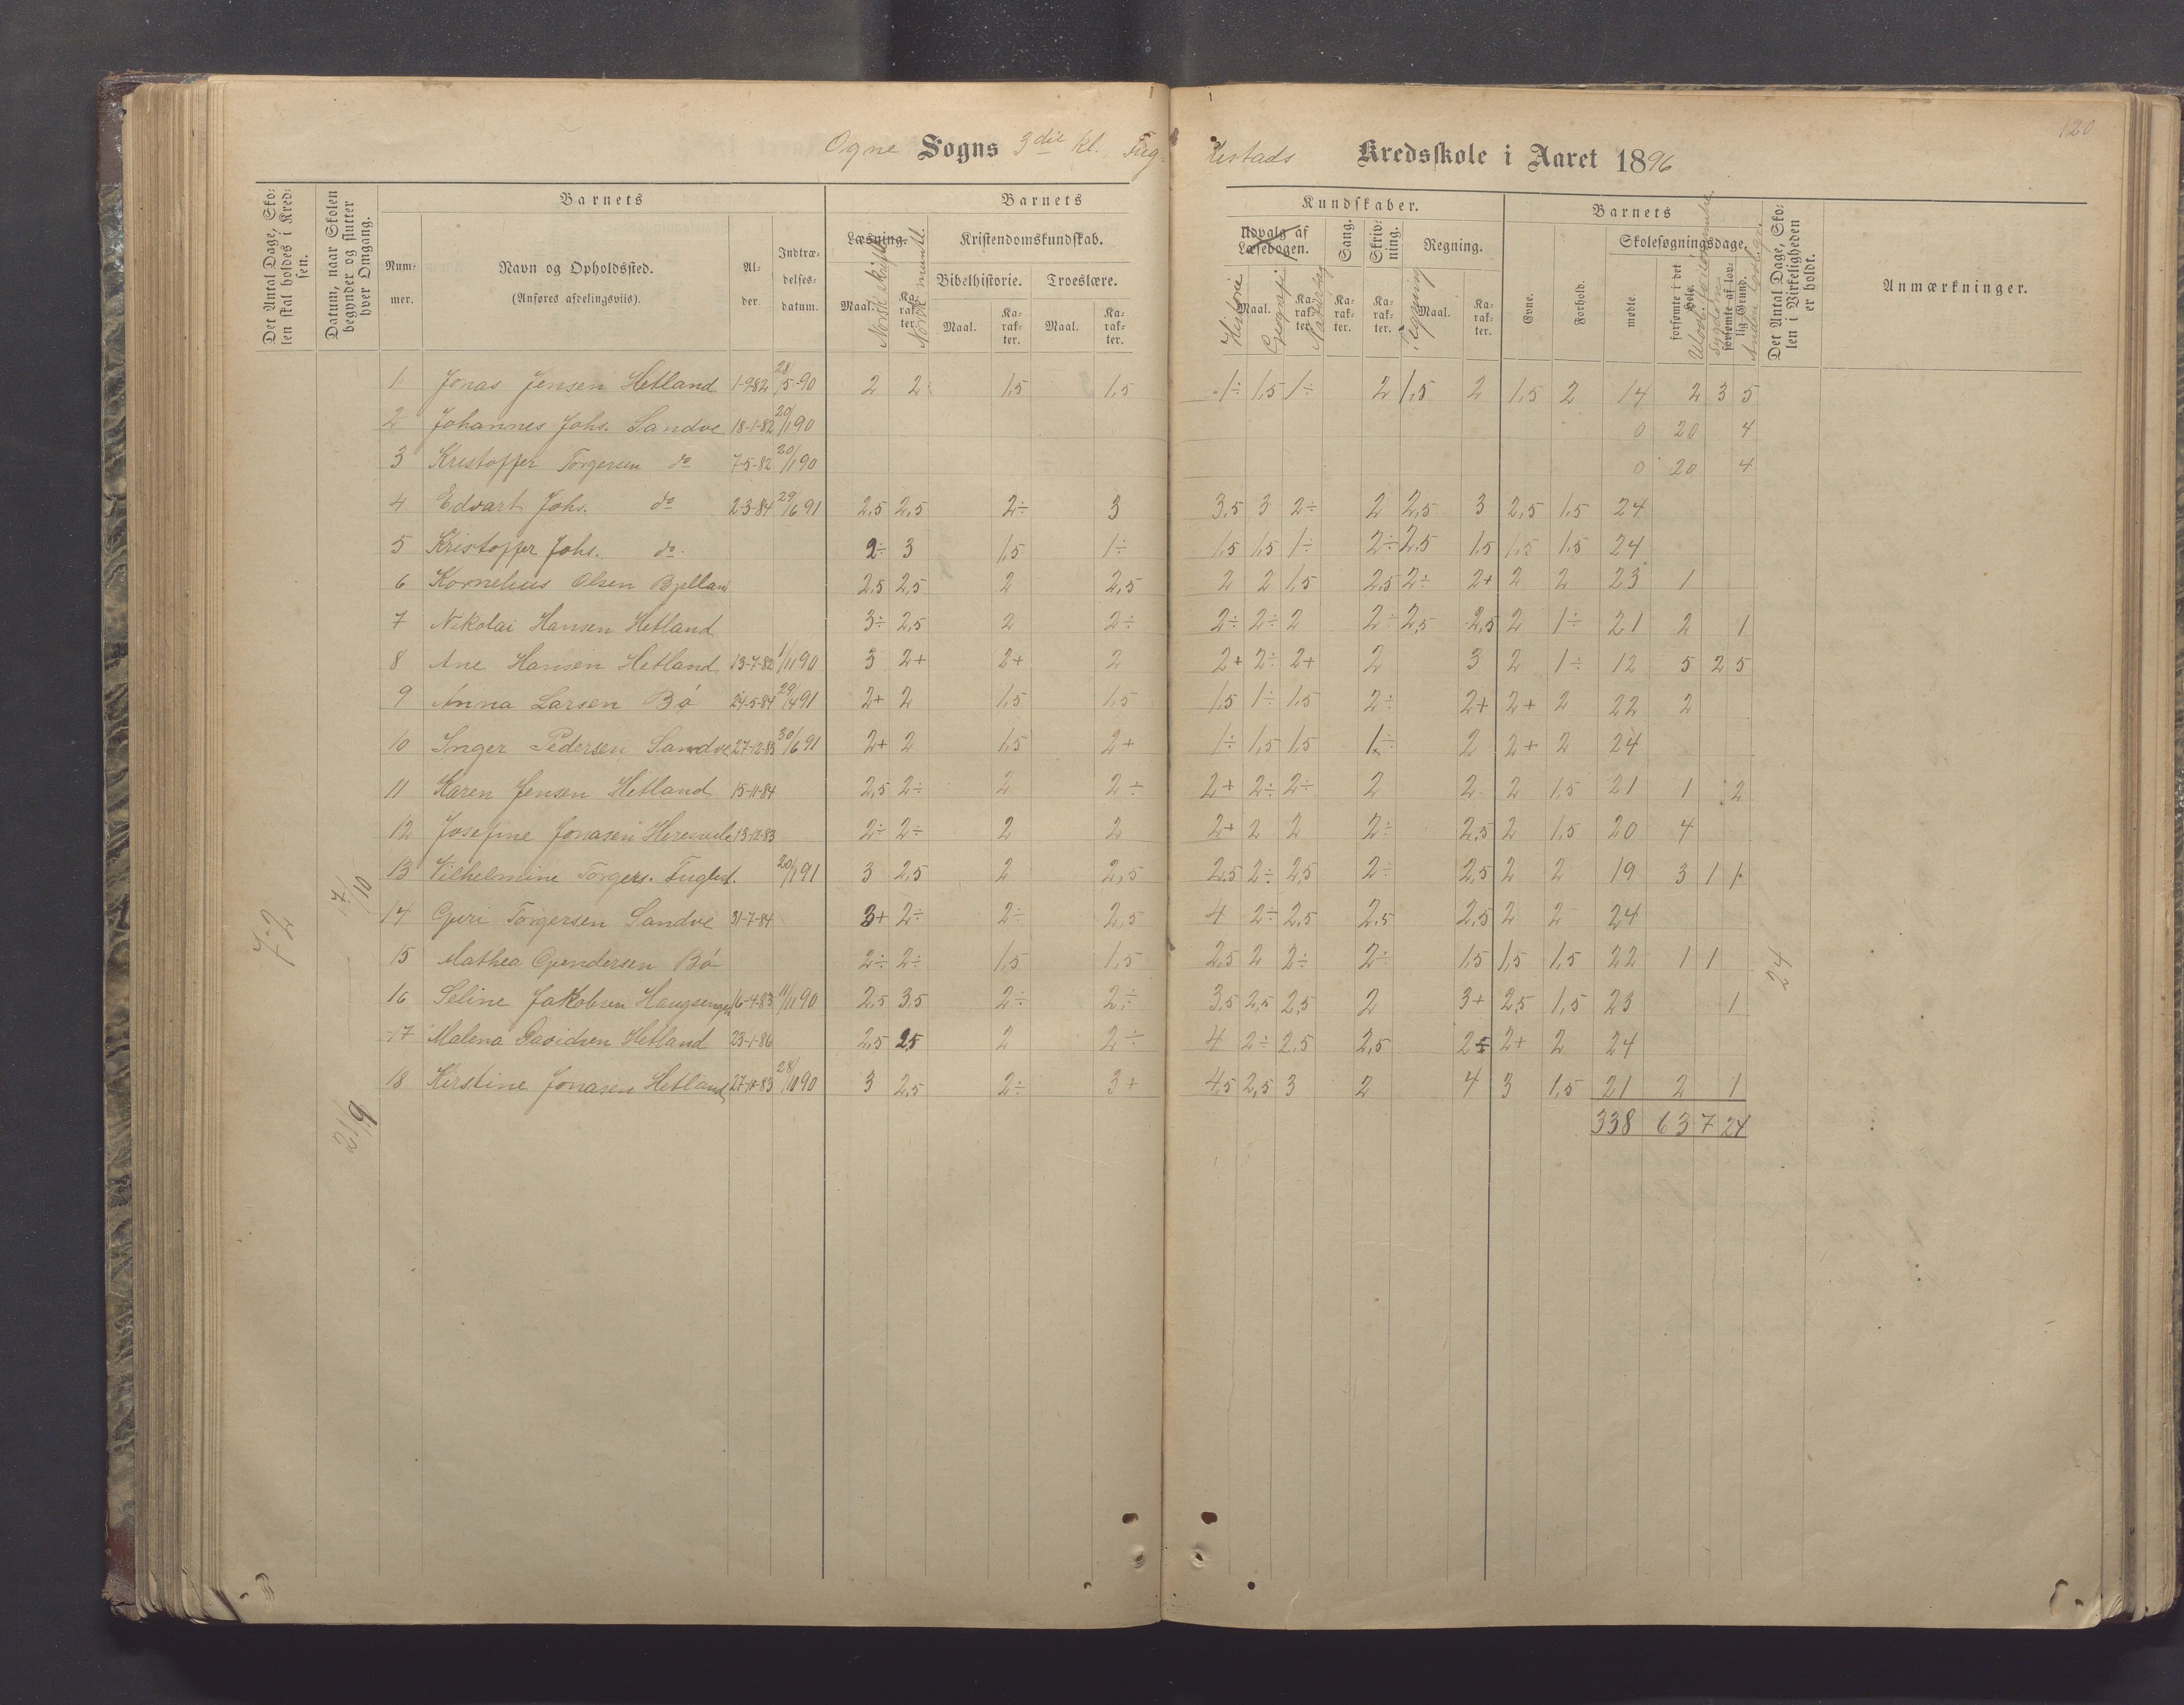 120
Ogne Sogns 3die kl. Fug- lestads Kredsskole i Aaret 1896
Det Antal Dage, Skolen skal holdes i Kredsen.
Datum, naar Skolen begynder og slutter hver Omgang.
Barnets
Nummer.
Navn og Opholdssted.
(Anføres afdelingsviis).
Alder.
Indtrædelsesdatum.
Barnets
Læsning.
Maal. Karakter.
Norsk skriftl.
Norsk mundtl.
Kristendomskundskab.
Bibelhistorie. Troeslære.
Maal. Karakter. Maal. Karakter.
Kundskaber.
Udvalg af Læsebogen.
Maal. Karakter.
Historie
Geografi
Naturfag
Sang. Karakter.
Skrivning. Karakter.
Regning. Maal. Karakter.
Tegning
Barnets
Evne. Forhold.
Skolesøgningsdage,
mødte. forsømte i det Hele. forsømte af lovlig Grund.
Ulovl. forsømmelse.
Sygdom
Anden lovlig gr.
Det Antal Dage, Skolen i Virkeligheden er holdt.
Anmærkninger.
1 Jonas Jensen Hetland 1-9-82 28/5-90 2 2 1,5 1,5 1÷ 1,5 1÷ 2 1,5 2 1,5 2 14 2 3 5
2 Johannes Johs. Sandve 18-1-82 20/1 90 0 20 4
3 Kristoffer Torgersen do 7-5-82 20/1 90 0 20 4
4 Edvart Johs. do 2-3-84 29/6 91 2,5 2,5 2÷ 3 3,5 3 2÷ 2 2,5 3 2,5 1,5 24
5 Kristoffer Johs. do. 2÷ 3 1,5 1÷ 1,5 1,5 1÷ 2÷ 2,5 1,5 1,5 1,5 24
6 Kornelius Olsen Bjelland 2,5 2,5 2 2,5 2 2 1,5 2,5 2÷ 2+ 2 2 23 1
7 Nikolai Hansen Hetland 3÷ 2,5 2 2÷ 2÷ 2÷ 2 2÷ 2,5 2,5 2 1÷ 21 2 1
8 Ane Hansen Hetland 13-7-82 1/11 90 3 2+ 2+ 2 2+ 2÷ 2+ 2 3 2 1÷ 12 5 2 5
9 Anna Larsen Bø 24-5-84 29/4 91 2+ 2 1,5 1,5 1,5 1÷ 1,5 2÷ 2+ 2+ 2 22 2
10 Inger Pedersen Sandve 27-12-83 30/6 91 2+ 2 1,5 2+ 1÷ 1,5 1,5 1÷ 2 2+ 2 24
11 Karen Jensen Hetland 15-11-84 2,5 2÷ 2 2÷ 2+ 2÷ 2÷ 2 2 2 1,5 21 1 2
12 Josefine Jonasen 13-12-83 2÷ 2÷ 2 2 2+ 2 2 2÷ 2,5 2 1,5 20 4
13 Vilhelmine Torgers. Fuglest. 20/1 91 3 2,5 2 2,5 2,5 2÷ 2,5 2÷ 2,5 2 2 19 3 1 1
14 Guri Torgersen Sandve 31-7-84 3+ 2÷ 2÷ 2,5 4 2÷ 2,5 2,5 2,5 2 2 24
15 Mathea Gundersen Bø 2÷ 2÷ 1,5 1,5 2,5 2 2÷ 2÷ 1,5 1,5 1,5 22 1 1
16 Seline Jakobsen 16-4-83 11/11 90 2,5 3,5 2÷ 2÷ 3,5 2,5 2,5 2 3+ 2,5 1,5 23 1
17 Malena Davidsen Hetland 23-1-86 2,5 2,5 2 2÷ 4 2÷ 2,5 2,5 2÷ 2+ 2 24
18 Kirstine Jonasen Hetland 27-10-83 28/10 90 3 2,5 2÷ 3+ 4,5 2,5 3 2 4 3 1,5 21 2 1
338 63 7 24
72
7/10
21/9
24